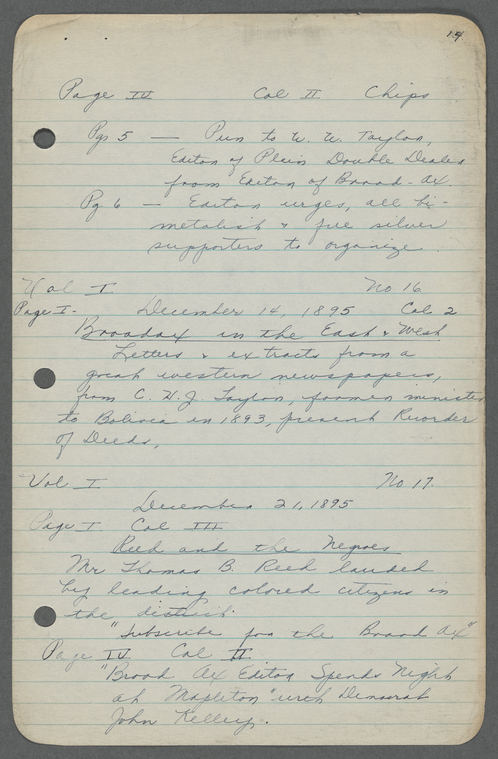 14
Page IV Col II Chips
Pgs 5 — Pun to W. W. Taylor,
Editor of Plain Double Dealer
from Editor of Broad-Ax.
Pg 6 — Editor urges, all bi-
metalist & free silver
supporters to organize.
Vol I. No 16
Page I- December 14, 1895 Col 2
Broadax in the East & West
Letters & extracts from a
great western newspapers,
from C. H. J. Taylor, former minister
to Bolivia in 1893, present Recorder
of Deeds,
Vol I No 17.
December 21, 1895
Page I Col III
Reed and the Negroes
Mr Thomas B. Reed lauded
by leading colored citizens in
the district.
"Subscribe for the Broad Ax"
Page IV Col II
"Broad Ax Editor Spends Night
at Mapleton" with Democrat
John Kelley.